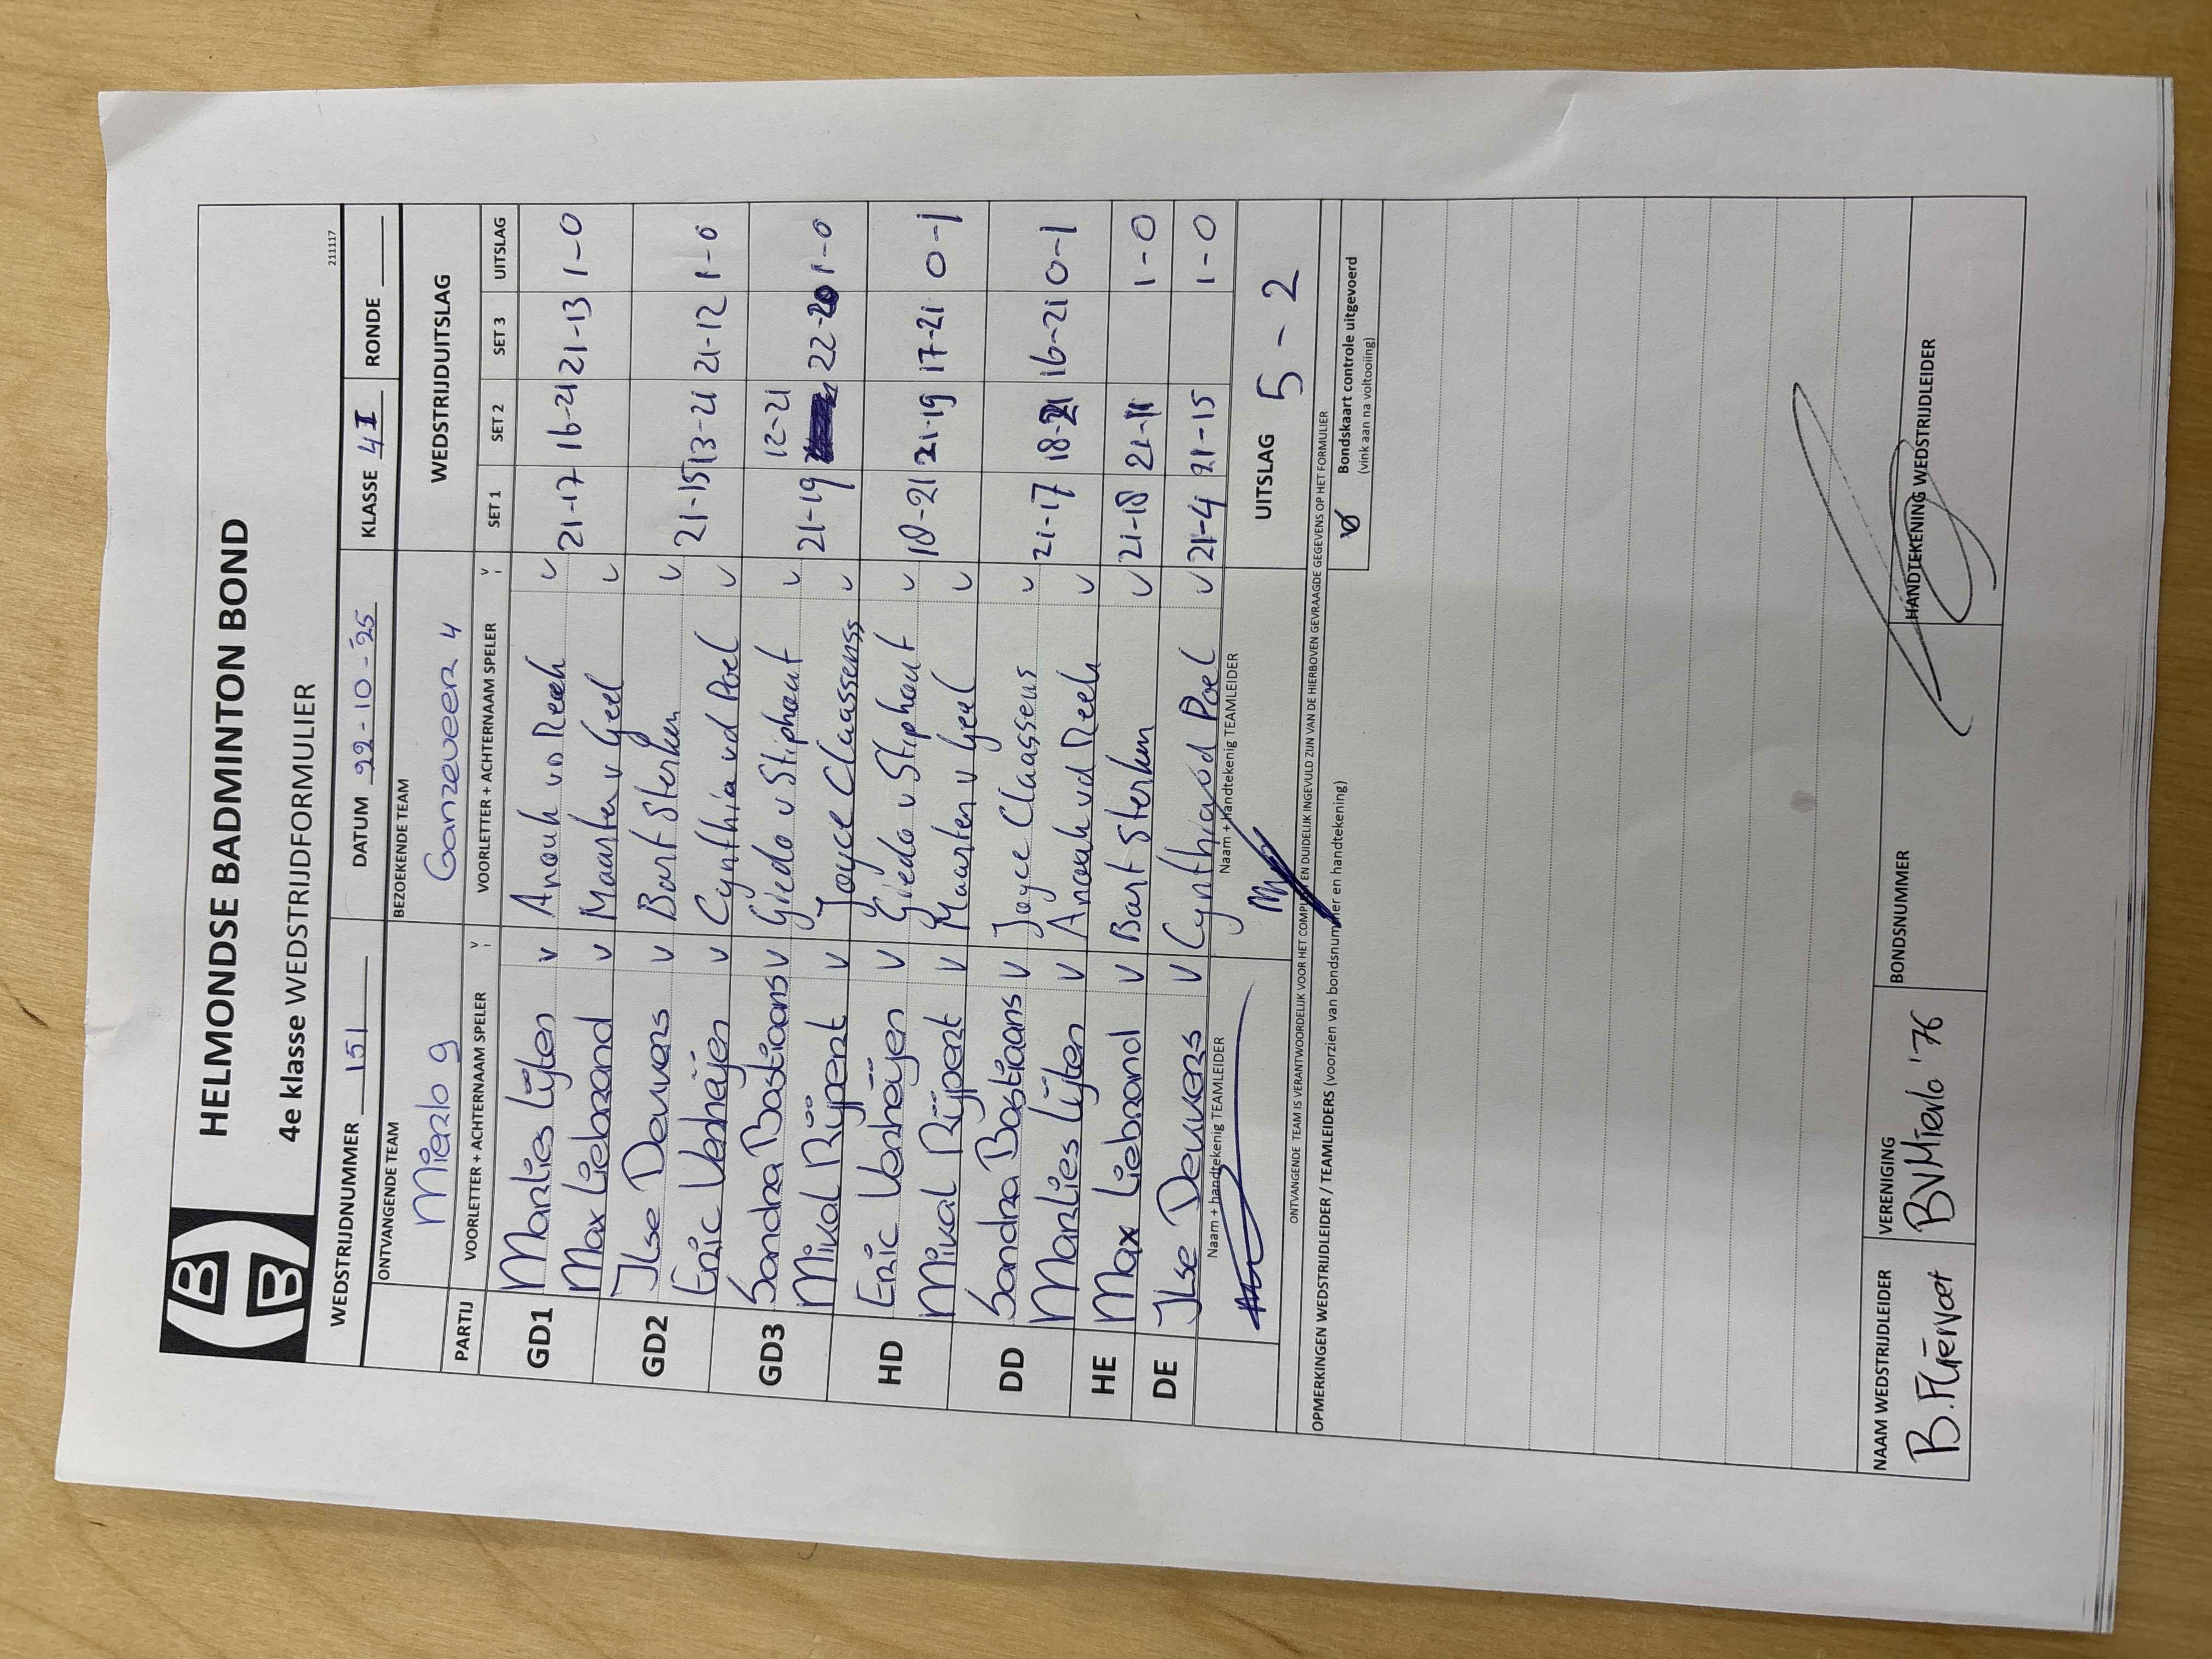 HELMONDSE BADMINTON BOND
4e klasse WEDSTRIJDFORMULIER
211117
WEDSTRIJDNUMMER 151 DATUM 22-10-'25 KLASSE 4I RONDE
ONTVANGENDE TEAM BEZOEKENDE TEAM WEDSTRIJDUITSLAG
Mierlo 9 Ganzeveer 4
PARTIJ VOORLETTER + ACHTERNAAM SPELER V VOORLETTER + ACHTERNAAM SPELER V SET 1 SET 2 SET 3 UITSLAG
GD1 Marlies Lijten v Anouk vd Reek v 21-17 16-21 21-13 1-0
Max Liebrand v Maarten v Geel v
GD2 Ilse Deuvers v Bart Sterken v 21-15 13-21 21-12 1-0
Eric Verheijen v Cynthia vd Poel v
GD3 Sandra Bastiaans v Giedo v Stiphout v 21-19 12-21 22-20 1-0
Mikal Rijpert v Joyce Claassens v
HD Eric Verheijen v Giedo v Stiphout v 18-21 21-19 17-21 0-1
Mikal Rijpert v Maarten v Geel v
DD Sandra Bastiaans v Joyce Claassens v 21-17 18-21 16-21 0-1
Marlies Lijten v Anouk vd Reek v
HE Max Liebrand v Bart Sterken v 21-18 21-11 1-0
DE Ilse Deuvers v Cynthia vd Poel v 21-4 21-15 1-0
Naam + handtekenig TEAMLEIDER Naam + handtekenig TEAMLEIDER UITSLAG 5 - 2
ONTVANGENDE TEAM IS VERANTWOORDELIJK VOOR HET COMPLEET EN DUIDELIJK INGEVULD ZIJN VAN DE HIERBOVEN GEVRAAGDE GEGEVENS OP HET FORMULIER
OPMERKINGEN WEDSTRIJDLEIDER / TEAMLEIDERS (voorzien van bondsnummer en handtekening)
Bondskaart controle uitgevoerd
(vink aan na voltooiing)
NAAM WEDSTRIJDLEIDER VERENIGING BONDSNUMMER HANDTEKENING WEDSTRIJDLEIDER
B. Fliervoet BVMierlo '76